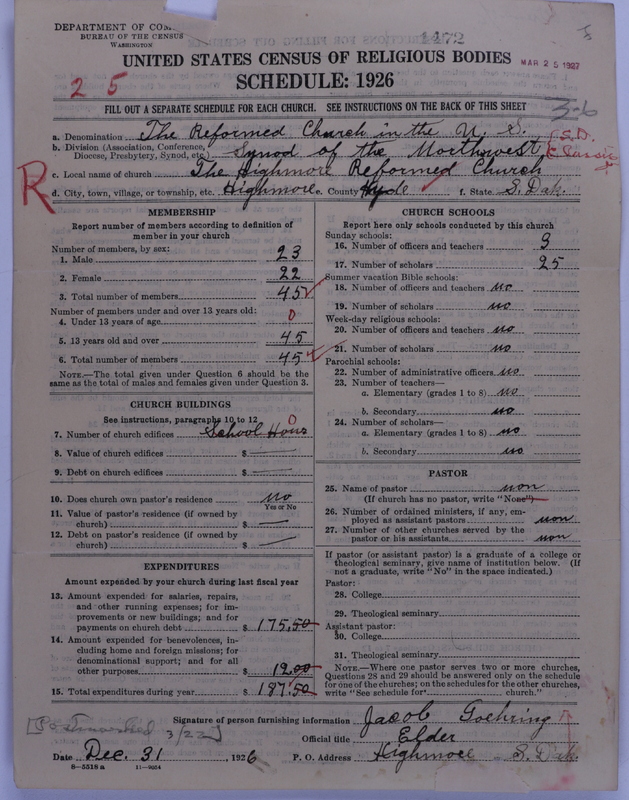 DEPARTMENT OF COM
BUREAU OF THE CENSUS
WASHINGTON
1472
MAR 25 1927
UNITED STATES CENSUS OF RELIGIOUS BODIES
SCHEDULE: 1926
2 5
3-6
FILL OUT A SEPARATE SCHEDULE FOR EACH CHURCH. SEE INSTRUCTIONS ON THE BACK OF THIS SHEET
a. Denomination The Reformed Church in the U. S. (S.D.
b. Division (Association, Conference, Diocese, Presbytery, Synod, etc.) Synod of the Northwest
c. Local name of church The Highmore Reformed Church
R
d. City, town, village, or township, etc. Highmore e. County Hyde f. State S. Dak.
MEMBERSHIP
Report number of members according to definition of
member in your church
Number of members, by sex:
1. Male 23
2. Female 22
3. Total number of members 45
Number of members under and over 13 years old:
4. Under 13 years of age 0
5. 13 years old and over 45
6. Total number of members 45
NOTE.—The total given under Question 6 should be
the same as the total of males and females given under Question 3.
CHURCH BUILDINGS
See instructions, paragraphs 10 to 12 0
7. Number of church edifices School Hous
8. Value of church edifices $
9. Debt on church edifices $
10. Does church own pastor's residence no
Yes or No
11. Value of pastor's residence (if owned by
church) $
12. Debt on pastor's residence (if owned by
church) $
EXPENDITURES
Amount expended by your church during last fiscal year
13. Amount expended for salaries, repairs,
and other running expenses; for im-
provements or new buildings; and for
payments on church debt $ 175.50
14. Amount expended for benevolences, in-
cluding home and foreign missions; for
denominational support; and for all
other purposes $ 12.00
15. Total expenditures during year $ 187.50
CHURCH SCHOOLS
Report here only schools conducted by this church
Sunday schools:
16. Number of officers and teachers 3
17. Number of scholars 25
Summer vacation Bible schools:
18. Number of officers and teachers no
19. Number of scholars no
Week-day religious schools:
20. Number of officers and teachers no
21. Number of scholars no
Parochial schools:
22. Number of administrative officers no
23. Number of teachers—
a. Elementary (grades 1 to 8) no
b. Secondary no
24. Number of scholars—
a. Elementary (grades 1 to 8) no
b. Secondary no
PASTOR
25. Name of pastor non
(If church has no pastor, write "None")
26. Number of ordained ministers, if any, em-
ployed as assistant pastors non
27. Number of other churches served by the
pastor or his assistants non
If pastor (or assistant pastor) is a graduate of a college or
theological seminary, give name of institution below. (If
not a graduate, write "No" in the space indicated.)
Pastor:
28. College
29. Theological seminary
Assistant pastor:
30. College
31. Theological seminary
NOTE.—Where one pastor serves two or more churches,
Questions 28 and 29 should be answered only on the schedule
for one of the churches; on the schedules for the other churches,
write "See schedule for church."
[Postmarked 3/22]
Signature of person furnishing information Jacob Goehring
Official title Elder
Date Dec. 31, 1926 P. O. Address Highmore S. Dak.
8—5518 a 11—9054